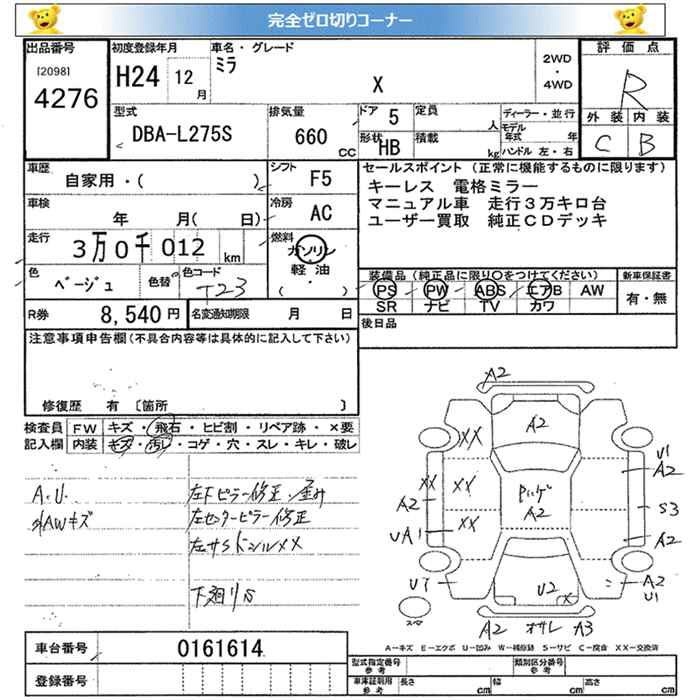 完全ゼロ切りコーナー
出品番号
[2098]
4276
初度登録年月
H24 12月
車名・グレード
ミラ
X
2WD
・
4WD
評価点
R
外装 内装
C B
型式
DBA-L275S
排気量
660 CC
ドア 5
形状 HB
定員 人
積載 kg
ディーラー・並行
モデル年式 年
ハンドル 左・右
車歴
自家用・( )
シフト
F5
車検
年 月( 日)
冷房
AC
走行
3万0千012 km
燃料
ガソリン
軽・油
( )
色
ベージュ
色替
色コード
T23
セールスポイント(正常に機能するものに限ります)
キーレス 電格ミラー
マニュアル車 走行3万キロ台
ユーザー買取 純正CDデッキ
装備品(純正品に限り○をつけてください)
PS PW ABS エアB AW
SR ナビ TV カワ
新車保証書
有・無
R券 8,540円
名変通知期限 月 日
後日品
注意事項申告欄(不具合内容等は具体的に記入して下さい)
修復歴 有 〔箇所 〕
検査員記入欄
FW キズ・飛石・ヒビ割・リペア跡・×要
内装 キズ・汚レ・コゲ・穴・スレ・キレ・破レ
A.U.
外AWキズ
左Fピラー修正・歪み
左センターピラー修正
左サイドシルXX
下廻りS
A2
A2
XX
XX
XX
XX
A2
UA1
A2
U1
A2
S3
A2
U2
X
A2
U1
A2 オサレ A3
スペア
A-キズ E-エクボ U-凹み W-補修跡 S-サビ C-腐食 XX-交換済
車台番号
0161614
登録番号
型式指定番号
参考
類別区分番号
参考
車庫証明用
参考
長さ cm 幅 cm 高さ cm